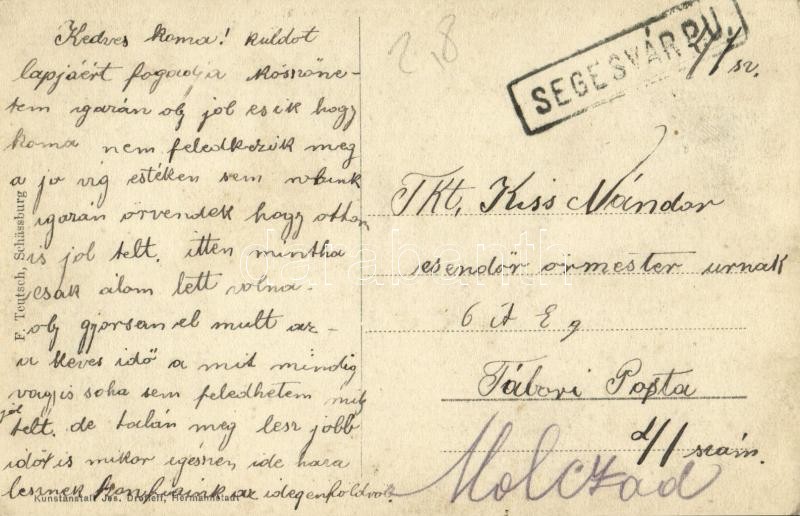 Kedves koma! küldöt
lapjáért fogadja köszöne-
tem igazán oly jól esik hogy
koma nem feledkezük meg
a jo víg estéken sem rolunk
igazán örvendek hogy otton
is jol telt. itten mintha
csak álom lett volna.
oly gyorsan el mult az-
a keves idő a mit mindig
vagyis soha sem feledhetem mily
jól
telt. de talán meg lesz jobb
időt is mikor egéssen ide haza
lesznek az idegenföldröl
F. Teutsch, Schässburg
Kunstanstalt Jos. Drotleff, Hermannstadt
2.8
SEGESVÁR P.U.
sz.
Tkt, Kiss Nándor
csendőr örmester urnak
6 A E g
Tábori Posta
d/1 szám.
Molczad
darabanth